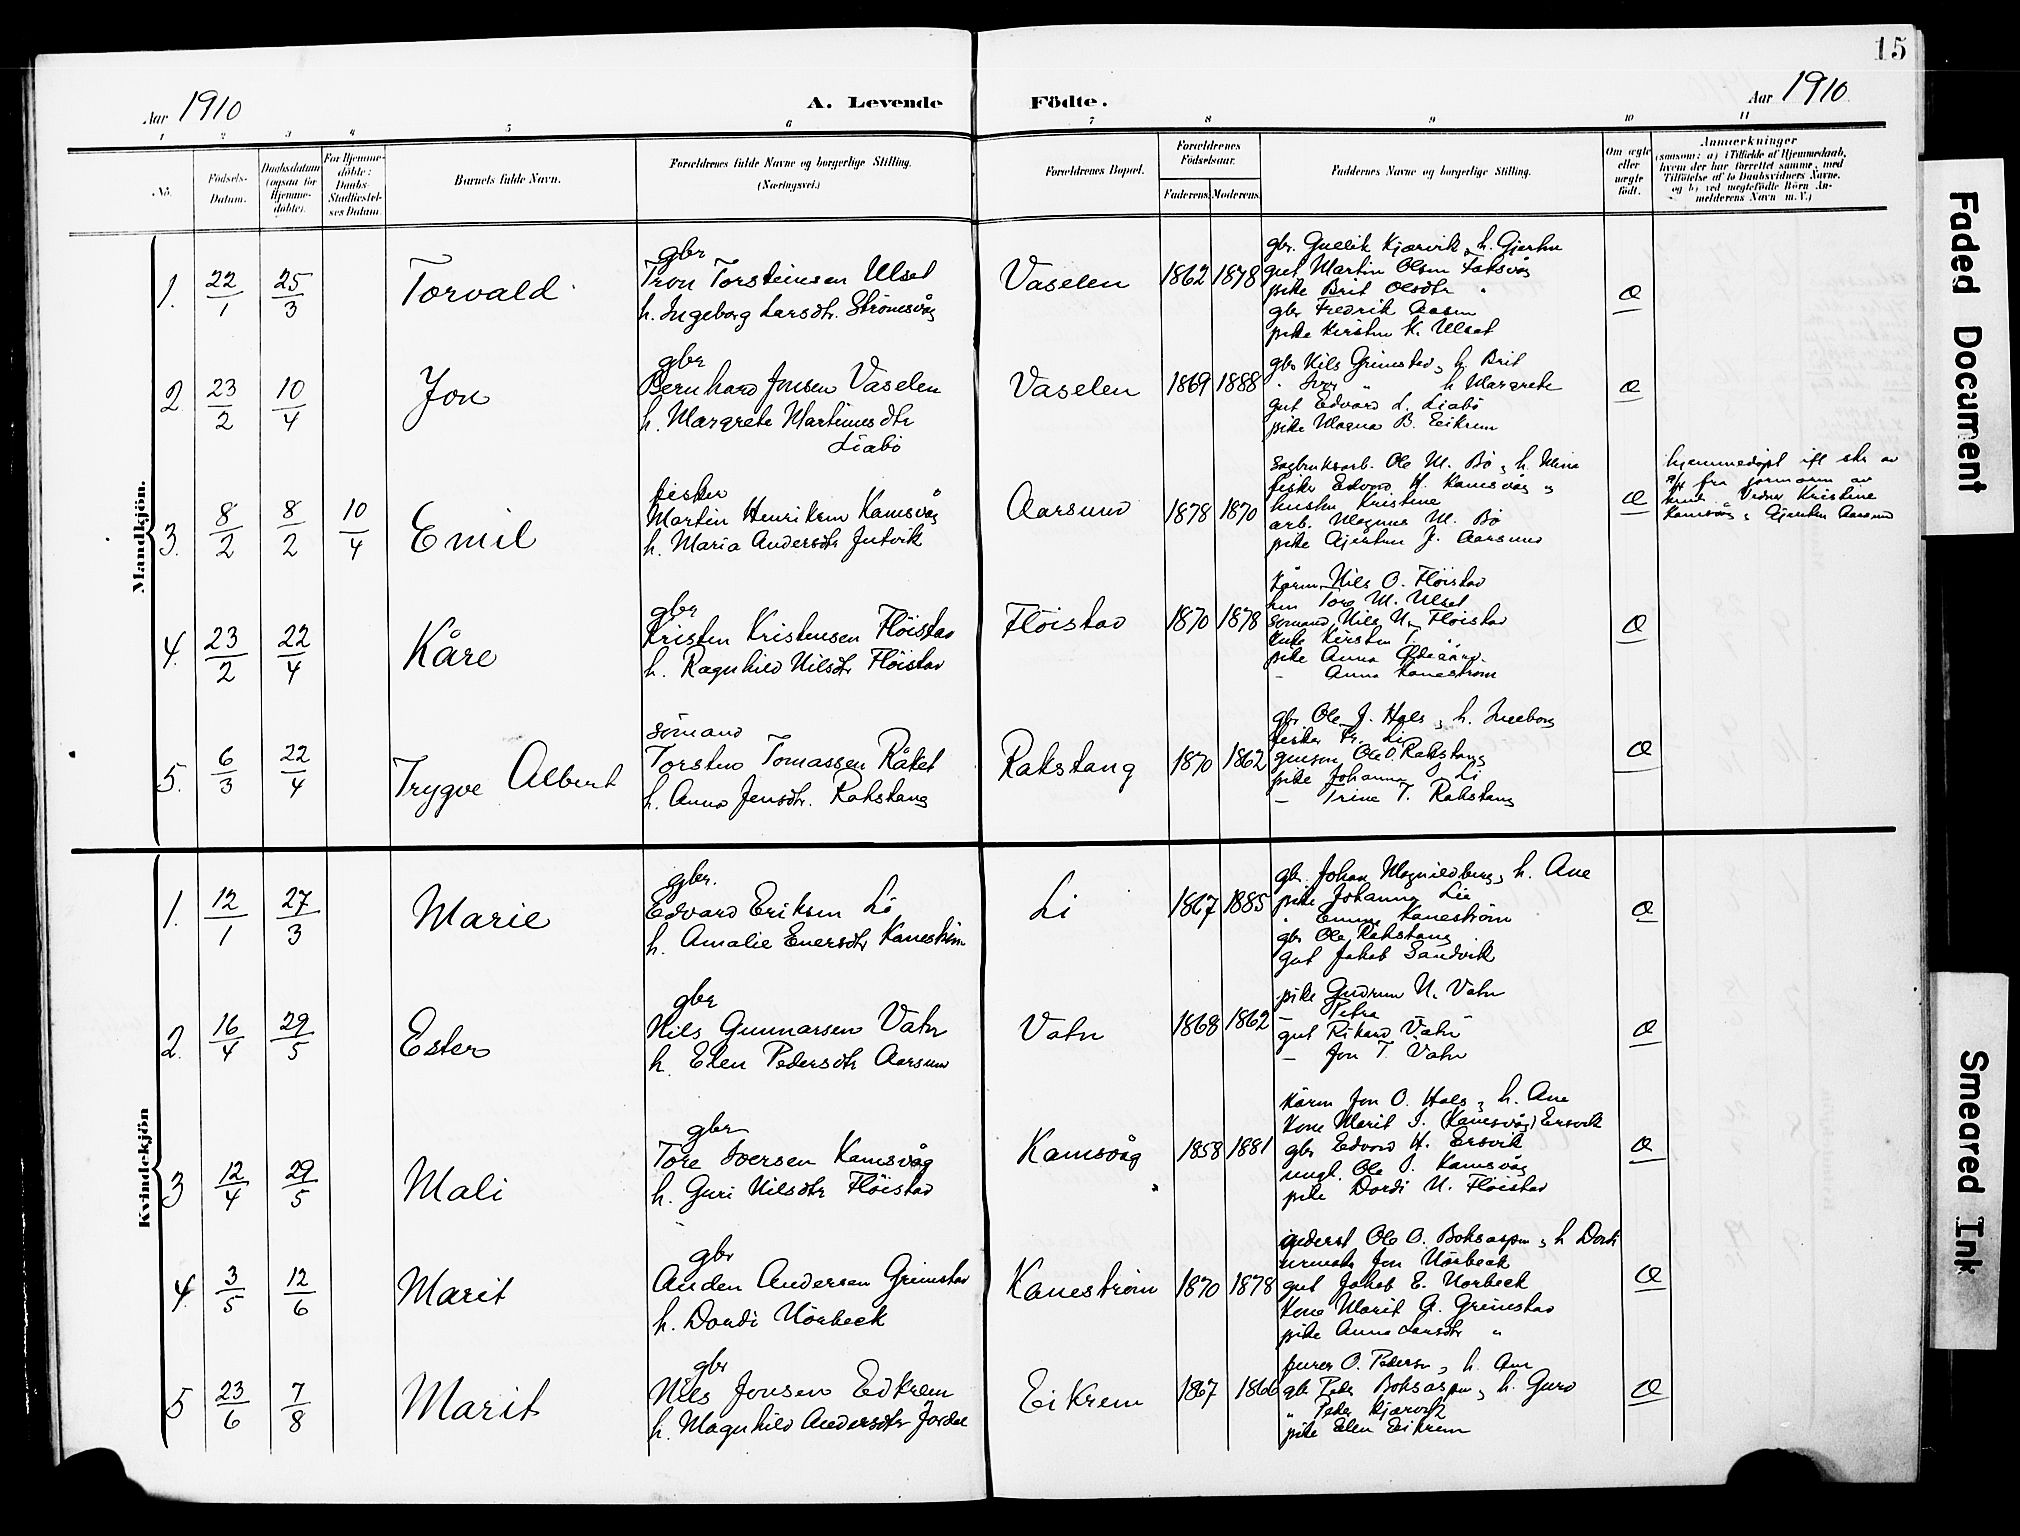 15
Aar 1910
A. Levende Födte.
Aar 1910.
1 2 3 4 5 6 7 8 9 10 11
No.
Födsels-Datum.
Daabsdatum (ogsaa for Hjemme-döbte).
For Hjemme-döbte: Daabs-Stadfæstel-ses Datum
Barnets fulde Navn.
Forældrenes fulde Navne og borgerlige Stilling. (Næringsvei.)
Forældrenes Bopæl.
Forældrenes Födselsaar.
Faderens. Moderens.
Faddernes Navne og borgerlige Stilling.
Om ægte eller uægte født.
Anmærkninger
(saasom: a) i Tilfælde af Hjemmedaab, hvem der har forrettet samme, med Tilföielse af to Daabsvidners Navne, og b) ved uægtefödte Börn An-melderens Navn m. V.)
Mandkjön.
1. 22/1 25/3 Torvald
gbr
Tron Torsteinsen Ulset
h. Ingeborg Larsdtr. Strömsvåg
Vaselen 1862 1878
gbr. Gullik Kjørvik, h. Gjertru
gut Martin Olsen
pike Brit Olsdtr "
gbr Fredrik Aasen
pike Kirsten K. Ulset
Æ
2. 23/2 10/4 Jon
gbr
Bernhard Jonsen Vaselen
h. Margrete Martinusdtr
Liabö
Vaselen 1869 1888
gbr Nils Grimstad, h. Brit
" Iver " h Margrete
gut Edvard L. Liabö
pike Magna B. Eikrem
Æ
3. 8/2 8/2 10/4 Emil
fisker
Martin Henriksen Kamsvåg
h. Maria Andersdtr Jutvik
Aarsund 1878 1870
Sagbruksarb. Ole M. Bö, h. Mina
fisker Edvard H. Kamsvåg "
hustru Kristine
arb. Magnus M. Bö
pike Gjertru J. Aarsund
Æ
hjemmedøpt ifl. skr av
fra jormorm av
Vidner Kristine
Kamsvåg, Gjertru Aarsund
4. 23/2 22/4 Kåre
gbr
Kristen Kristensen Flöistad
h. Ragnhild Nilsdtr Flöistad
Flöistad 1870 1878
Kårm. Nils O. Flöistad
Tore M. Ulset
sömand Nils N. Flöistad
Kirsten T. "
pike Anna
– Anna Kaneström
Æ
5. 6/3 22/4 Trygve Albert
sömand
Torsten Tomassen Råket
h. Anna Jensdtr. Rakstang
Rakstang 1870 1862
gbr Ole J. Hals, h. Ingeborg
fisker Li
Ole O. Rakstang
pike Johanna Li
– Trine T. Rakstang
Æ
Kvindekjön
1. 12/1 27/3 Marie
gbr.
Edvard Eriksen Li
h. Amalie Enersdtr Kaneström
Li 1867 1885
gbr. Johan Magnildberg, h. Ane
pike Johanna Lie
" Emma Kaneström
gbr Ole Rakstang
gut Jakob Sandvik
Æ
2. 16/4 29/5 Ester
gbr
Nils Gunnarsen Vatn
h. Elen Pedersdtr Aarsund
Vatn 1868 1862
pike Gudrun N. Vatn
– Petra "
gut Rikard Vatn
– Jon T. Vatn
Æ
3 12/4 29/5 Mali
gbr
Tore Iversen Kamsvåg
h. Guri Nilsdtr Flöistad
Kamsvåg 1858 1881
Kårm Jon O. Hals, h. Ane
Kone Marit I. (Kamsvåg) Ersvik
gbr Edvard H. Ersvik
ungk. Ole I. Kamsvåg
pike Dordi N. Flöistad
Æ
4. 3/5 12/6 Marit
gbr
Anders Andersen Grimstad
h. Dordi Nörbeck
Kaneström 1870 1878
inderst Ole O. Boksaspen, h Dordi
urmaker Jon Nörbeck
gut Jakob E. Norbeck
Kone Marit A. Grimstad
pike Anna Larsdtr "
Æ
5 23/6 7/8 Marit
gbr
Nils Jonsen Eikrem
h. Magnhild Andersdtr Jordal
Eikrem 1867 1866
O. Pedersen, h. Ane
gbr Peder Boksaspen, h. Guro
" Peder Kjørvik
pike Elen Eikrem
Æ
Faded Document
Smeared Ink